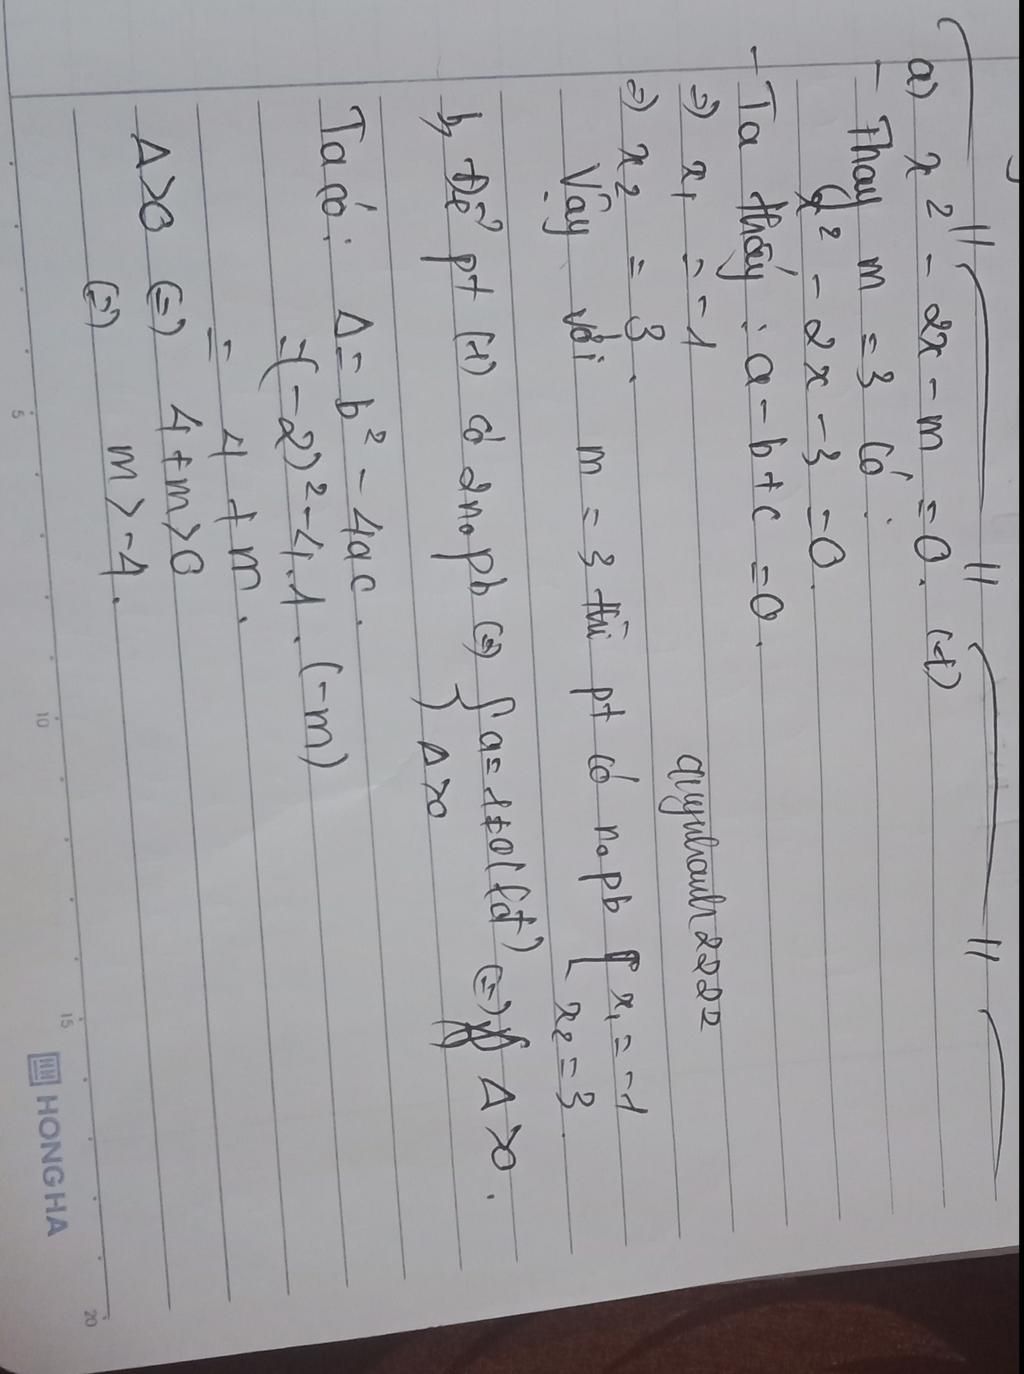 a) x² - 2x - m = 0. (1)
- Thay m = 3 có:
x² - 2x - 3 = 0.
- Ta thấy: a - b + c = 0.
=) x₁ = -1
quynhanh222
=) x₂ = 3.
Vậy với m = 3 thì pt có n₀ pb [ x₁ = -1
x₂ = 3.
b, Để pt (1) có 2n₀ pb (=) { a = 1 ≠ 0 (lđ) (=) Δ > 0.
Δ > 0
Ta có: Δ = b² - 4ac.
= (-2)² - 4.1.(-m)
= 4 + m.
Δ > 0 (=) 4 + m > 0
(=) m > -4.
5 10 15 20
HONG HA